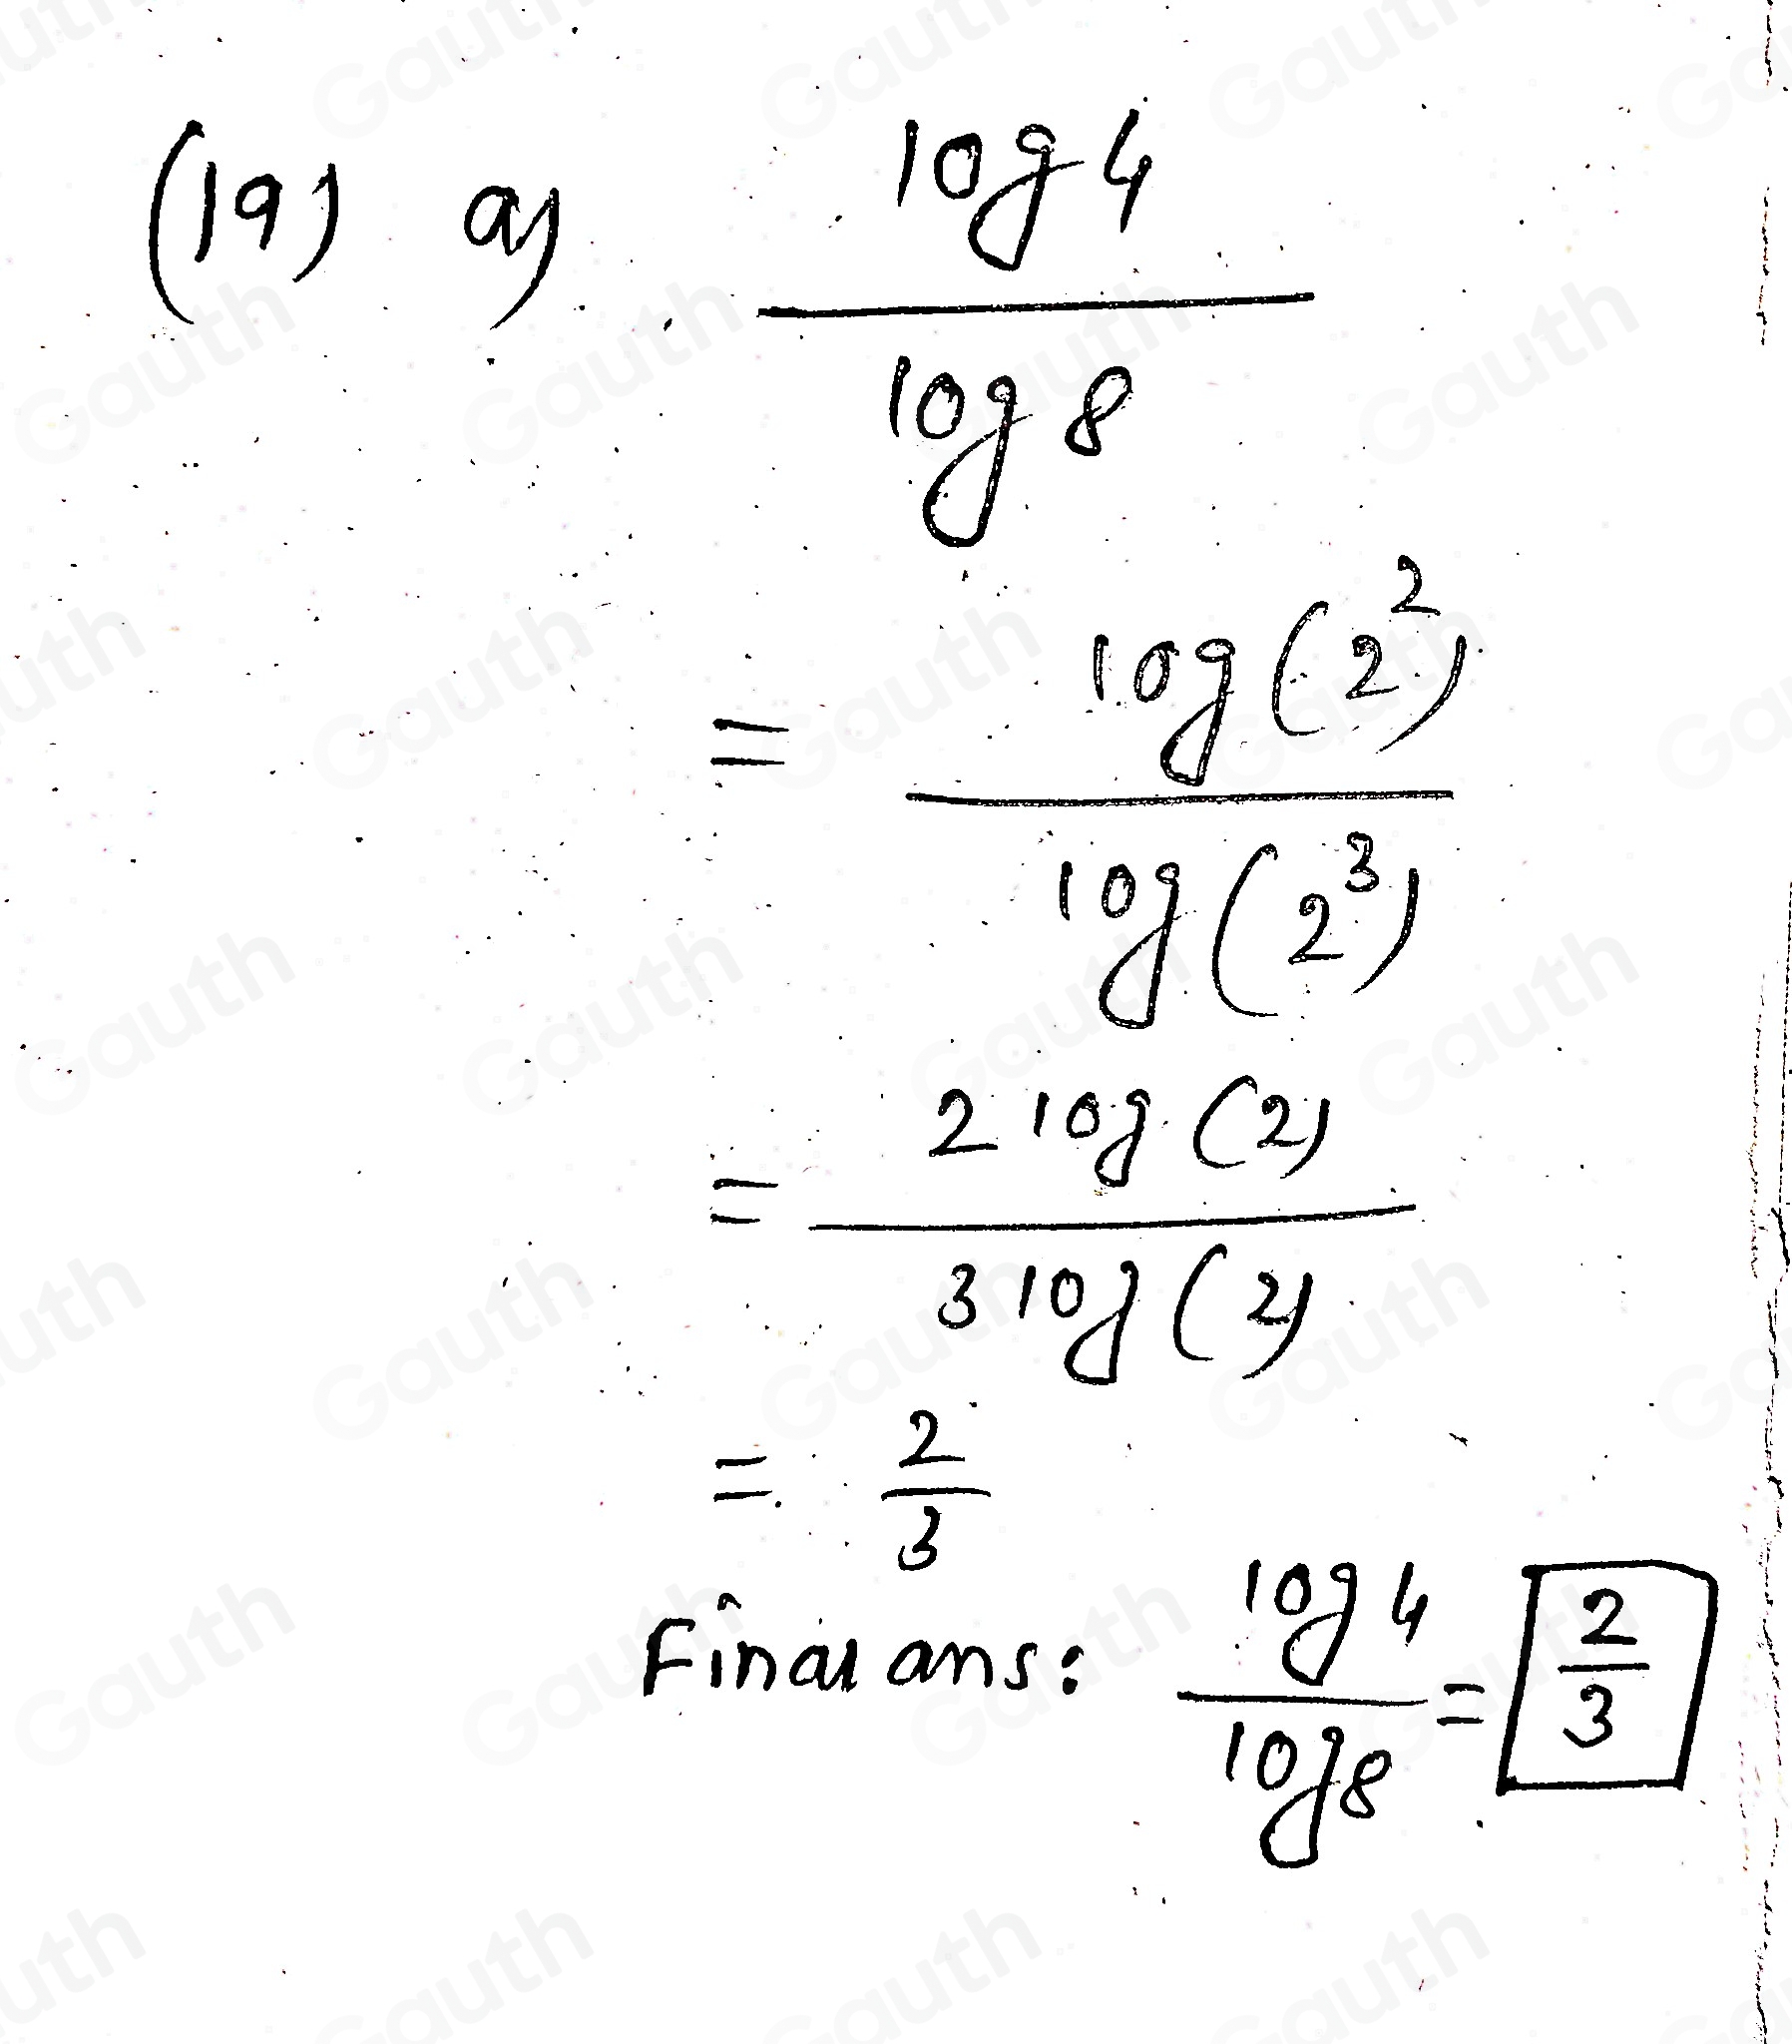 (19) a) log 4
log 8
= log(2²)
log(2³)
= 2 log(2)
3 log(2)
= 2
3
Final ans: log 4 = 2
log 8 3